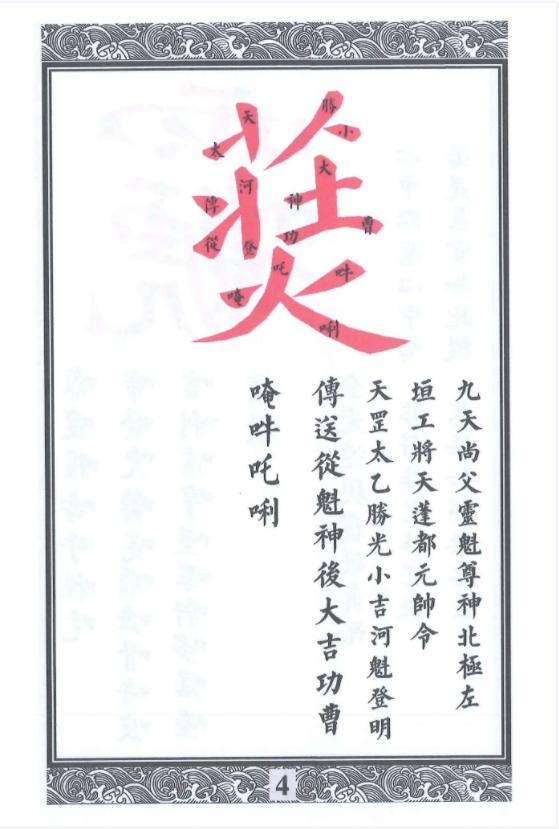 九天尚父靈魁尊神北極左
垣工將天蓬都元帥令
天罡太乙勝光小吉河魁登明
傳送從魁神後大吉功曹
唵吽吒唎
天
太
勝
小
大
河
神
傳
功
曹
從
登
吒
吽
唵
唎
4